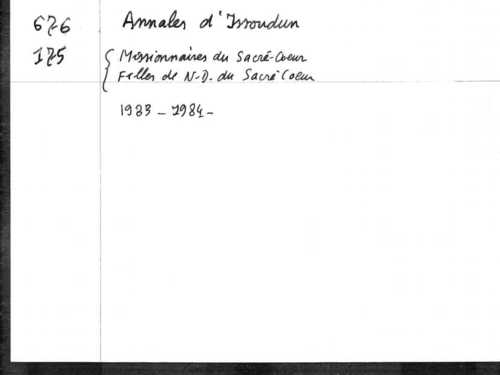 676 Annales d'Issoudun
175 Missionnaires du Sacré-Coeur
Filles de N-D. du Sacré Coeur
1983 - 1984 -